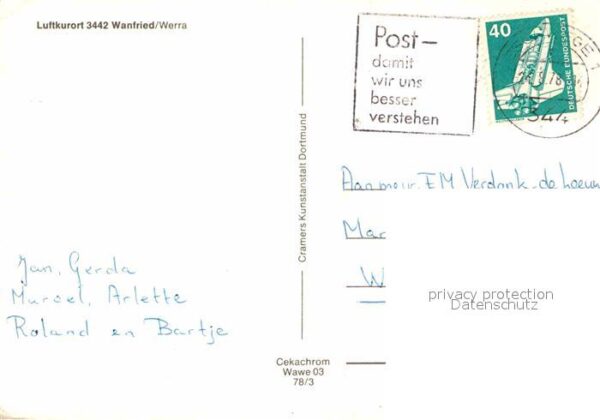 Luftkurort 3442 Wanfried/Werra
Post-
damit
wir uns
besser
verstehen
40
DEUTSCHE BUNDESPOST
344
Cramers Kunstanstalt Dortmund
Mar
W
privacy protection
Datenschutz
Jan, Gerda
Marcel, Arlette
Roland en Bartje
Cekachrom
Wawe 03
78/3